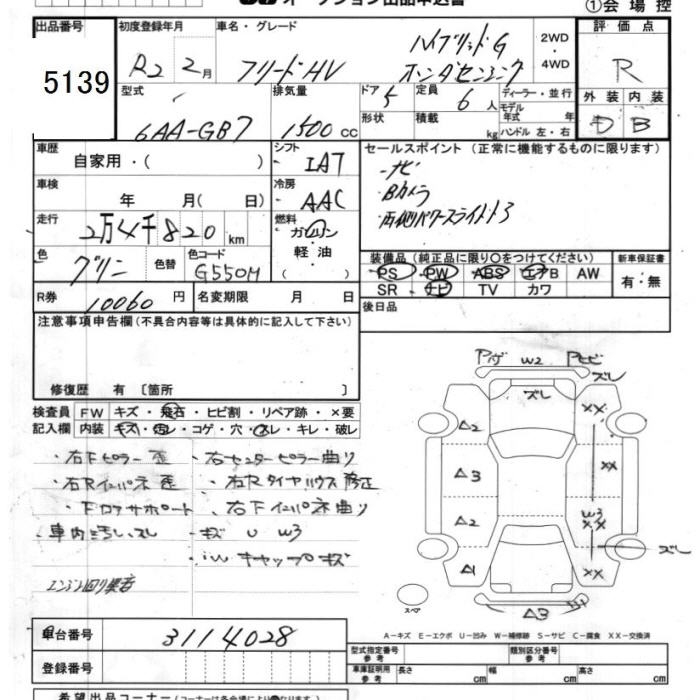 オークション出品申込書
①会場控
出品番号
5139
初度登録年月
R2 2月
車名・グレード
フリードHV
ハイブリッドG
ホンダセンシング
2WD
・
4WD
評価点
R
外装 内装
D B
型式
6AA-GB7
排気量
1500 CC
ドア
5
定員
6 人
形状
積載
kg
ディーラー・並行
モデル
年式 年
ハンドル 左・右
車歴
自家用・( )
シフト
IAT
車検
年 月(日)
冷房
AAC
走行
2万4千820 km
燃料
ガソリン
・
軽油
( )
色
グリーン
色替
色コード
G550M
R券
10060 円
名変期限 月 日
セールスポイント (正常に機能するものに限ります)
ナビ
Bカメラ
両側パワースライドドア
装備品 (純正品に限り○をつけてください)
PS PW ABS エアB AW
SR ナビ TV カワ
新車保証書
有・無
後日品
注意事項申告欄 (不具合内容等は具体的に記入して下さい)
修復歴 有 〔箇所 〕
検査員
記入欄
FW キズ・飛石・ヒビ割・リペア跡・×要
内装 キズ・汚レ・コゲ・穴・スレ・キレ・破レ
・右Fピラー歪
・右センターピラー曲り
・右Rインパネ歪
・右Rタイヤハウス修正
・Fロアサポート
・右Fインパネ曲り
・車内汚レ.スレ
・キズ U W3
・キャップキズ
W2
スレ
スレ
△2
XX
△3
XX
△2
W3
XX
スレ
△1
XX
△3
スペア
A-キズ E-エクボ U-凹み W-補修跡 S-サビ C-腐食 XX-交換済
車台番号
3114028
登録番号
型式指定番号
参考
類別区分番号
参考
車庫証明用
参考
長さ cm
幅 cm
高さ cm
希望出品コーナー